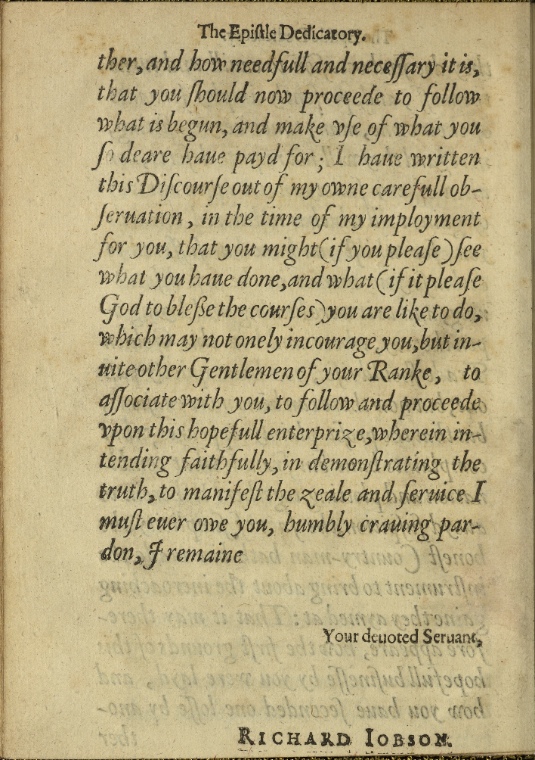 The Epiſtle Dedicatory.
ther, and how needfull and neceſſary it is,
that you ſhould now proceede to follow
what is begun, and make vſe of what you
ſo deare haue payd for; I haue written
this Diſcourſe out of my owne carefull ob-
ſeruation, in the time of my imployment
for you, that you might (if you pleaſe) ſee
what you haue done, and what (if it pleaſe
God to bleße the courſes) you are like to do,
which may not onely incourage you, but in-
uite other Gentlemen of your Ranke, to
aſſociate with you, to follow and proceede
vpon this hopefull enterprize, wherein in-
tending faithfully, in demonſtrating the
truth, to manifeſt the zeale and ſeruice I
muſt euer owe you, humbly crauing par-
don, I remaine
Your deuoted Seruant,
RICHARD IOBSON.